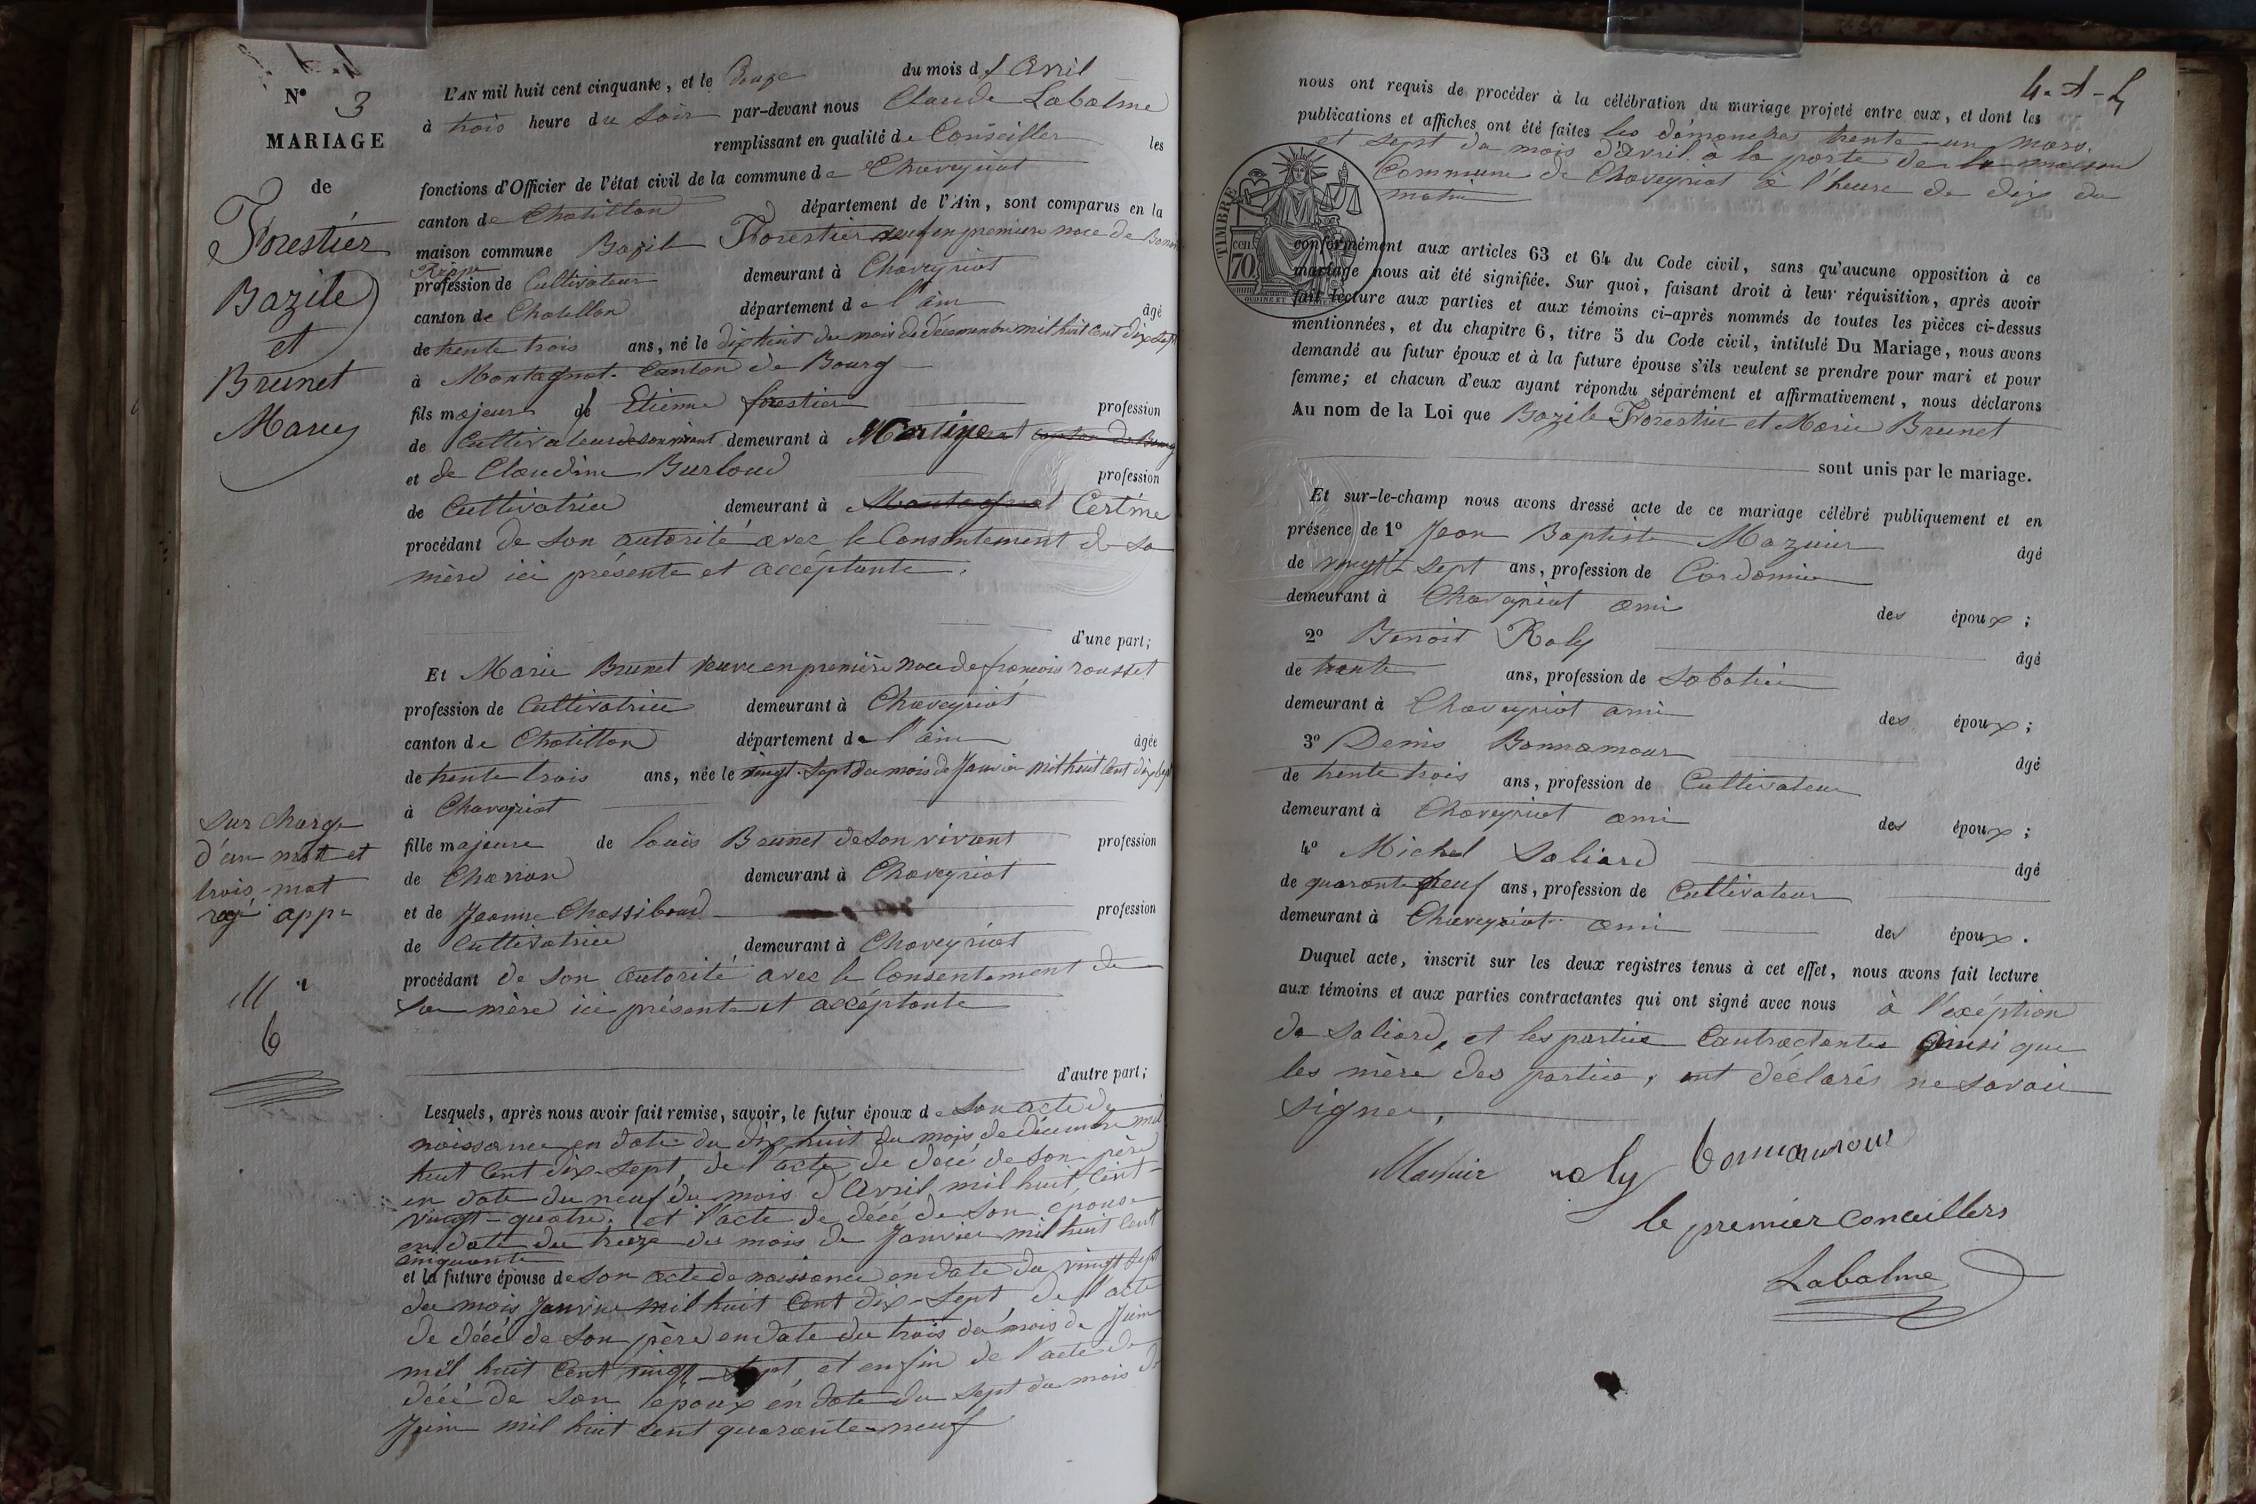 N° 3
MARIAGE
de
Forestier
Bazile
et
Brunet
Marie
L'AN mil huit cent cinquante, et le Douze du mois d'Avril
à trois heure du Soir par-devant nous Claude Labalme
remplissant en qualité de Conseiller les
fonctions d'Officier de l'état civil de la commune de Chaveyriat
canton de Chatillon département de l'Ain, sont comparus en la
maison commune Bazile Forestier veuf en premiere noce de
profession de Cultivateur demeurant à Chaveyriat
canton de Chatillon département de l'ain âgé
de trente trois ans, né le dix huit du mois de décembre mil huit Cent dix Sept
à Montagnat Canton de Bourg
fils majeur de Etienne forestier profession
de Cultivateur de son vivant demeurant à canton de Bourg
et de Claudine Burloud profession
de Cultivatrice demeurant à Montagnat Certine
procédant de Son autorité avec le Consentement de Sa
mère ici présente et accéptante.
d'une part;
Et Marie Brunet veuve en premièr noce de françois rousset
profession de Cultivatrice demeurant à Chaveyriat
canton de Chatillon département de l'ain âgée
de trente trois ans, née le vingt-Sept du mois de Janvier mil huit Cent dix Sept
à Chaveyriat
fille majeure de louis Brunet de Son vivant profession
de Charron demeurant à Chaveyriat
et de Jeanne Chassiboud profession
de Cultivatrice demeurant à Chaveyriat
procédant de Son autorité avec le Consentement de
Sa mère ici présente et accéptante
Sur charge
d'un mot et
trois mot
rayé app
d'autre part;
Lesquels, après nous avoir fait remise, savoir, le futur époux de Son acte de
naissance en date du dix huit du mois de décembre mil
huit Cent dix-Sept, de l'acte de décé de Son père
en date du neuf du mois d'Avril mil huit Cent
vingt-quatre, et l'acte de décé de Son épouse
en date du treize du mois de Janvier mil huit Cent
cinquante
et la future épouse de Son acte de naissance en date du vingt Sept
du mois Janvier mil huit Cent dix-Sept de l'acte
de décé de Son père en date du trois du mois de Juin
mil huit Cent vingt-Sept, et enfin de l'acte de
décé de Son époux en date du Sept du mois de
Juin mil huit Cent quarante-neuf
nous ont requis de procéder à la célébration du mariage projeté entre eux, et dont les
publications et affiches ont été faites les démanches trente-un mars
et Sept du mois d'avril à la porte de la maison
Commune de Chaveyriat à l'heure de dix du
matin
TIMBRE
70
conformément aux articles 63 et 64 du Code civil, sans qu'aucune opposition à ce
mariage nous ait été signifiée. Sur quoi, faisant droit à leur réquisition, après avoir
fait lecture aux parties et aux témoins ci-après nommés de toutes les pièces ci-dessus
mentionnées, et du chapitre 6, titre 5 du Code civil, intitulé Du Mariage, nous avons
demandé au futur époux et à la future épouse s'ils veulent se prendre pour mari et pour
femme; et chacun d'eux ayant répondu séparément et affirmativement, nous déclarons
Au nom de la Loi que Bazile Forestier et Marie Brunet
sont unis par le mariage.
Et sur-le-champ nous avons dressé acte de ce mariage célébré publiquement et en
présence de 1° Jean Baptiste Mazuir âgé
de vingt-Sept ans, profession de Cordonnier
demeurant à Chaveyriat ami des époux;
2° Benoit Roly âgé
de trente ans, profession de Sabotier
demeurant à Chaveyriat ami des époux;
3° Denis Bonnamour âgé
de trente trois ans, profession de Cultivateur
demeurant à Chaveyriat ami des époux;
4° Michel Saliard âgé
de quarante neuf ans, profession de Cultivateur
demeurant à Chaveyriat ami des époux.
Duquel acte, inscrit sur les deux registres tenus à cet effet, nous avons fait lecture
aux témoins et aux parties contractantes qui ont signé avec nous à l'exéption
de Saliard, et les parties Contractantes Ainsi que
les mère des parties, ont déclarés ne Savoir
Signer.
Mazuir roly bonnamour
le premier conceillers
Labalme